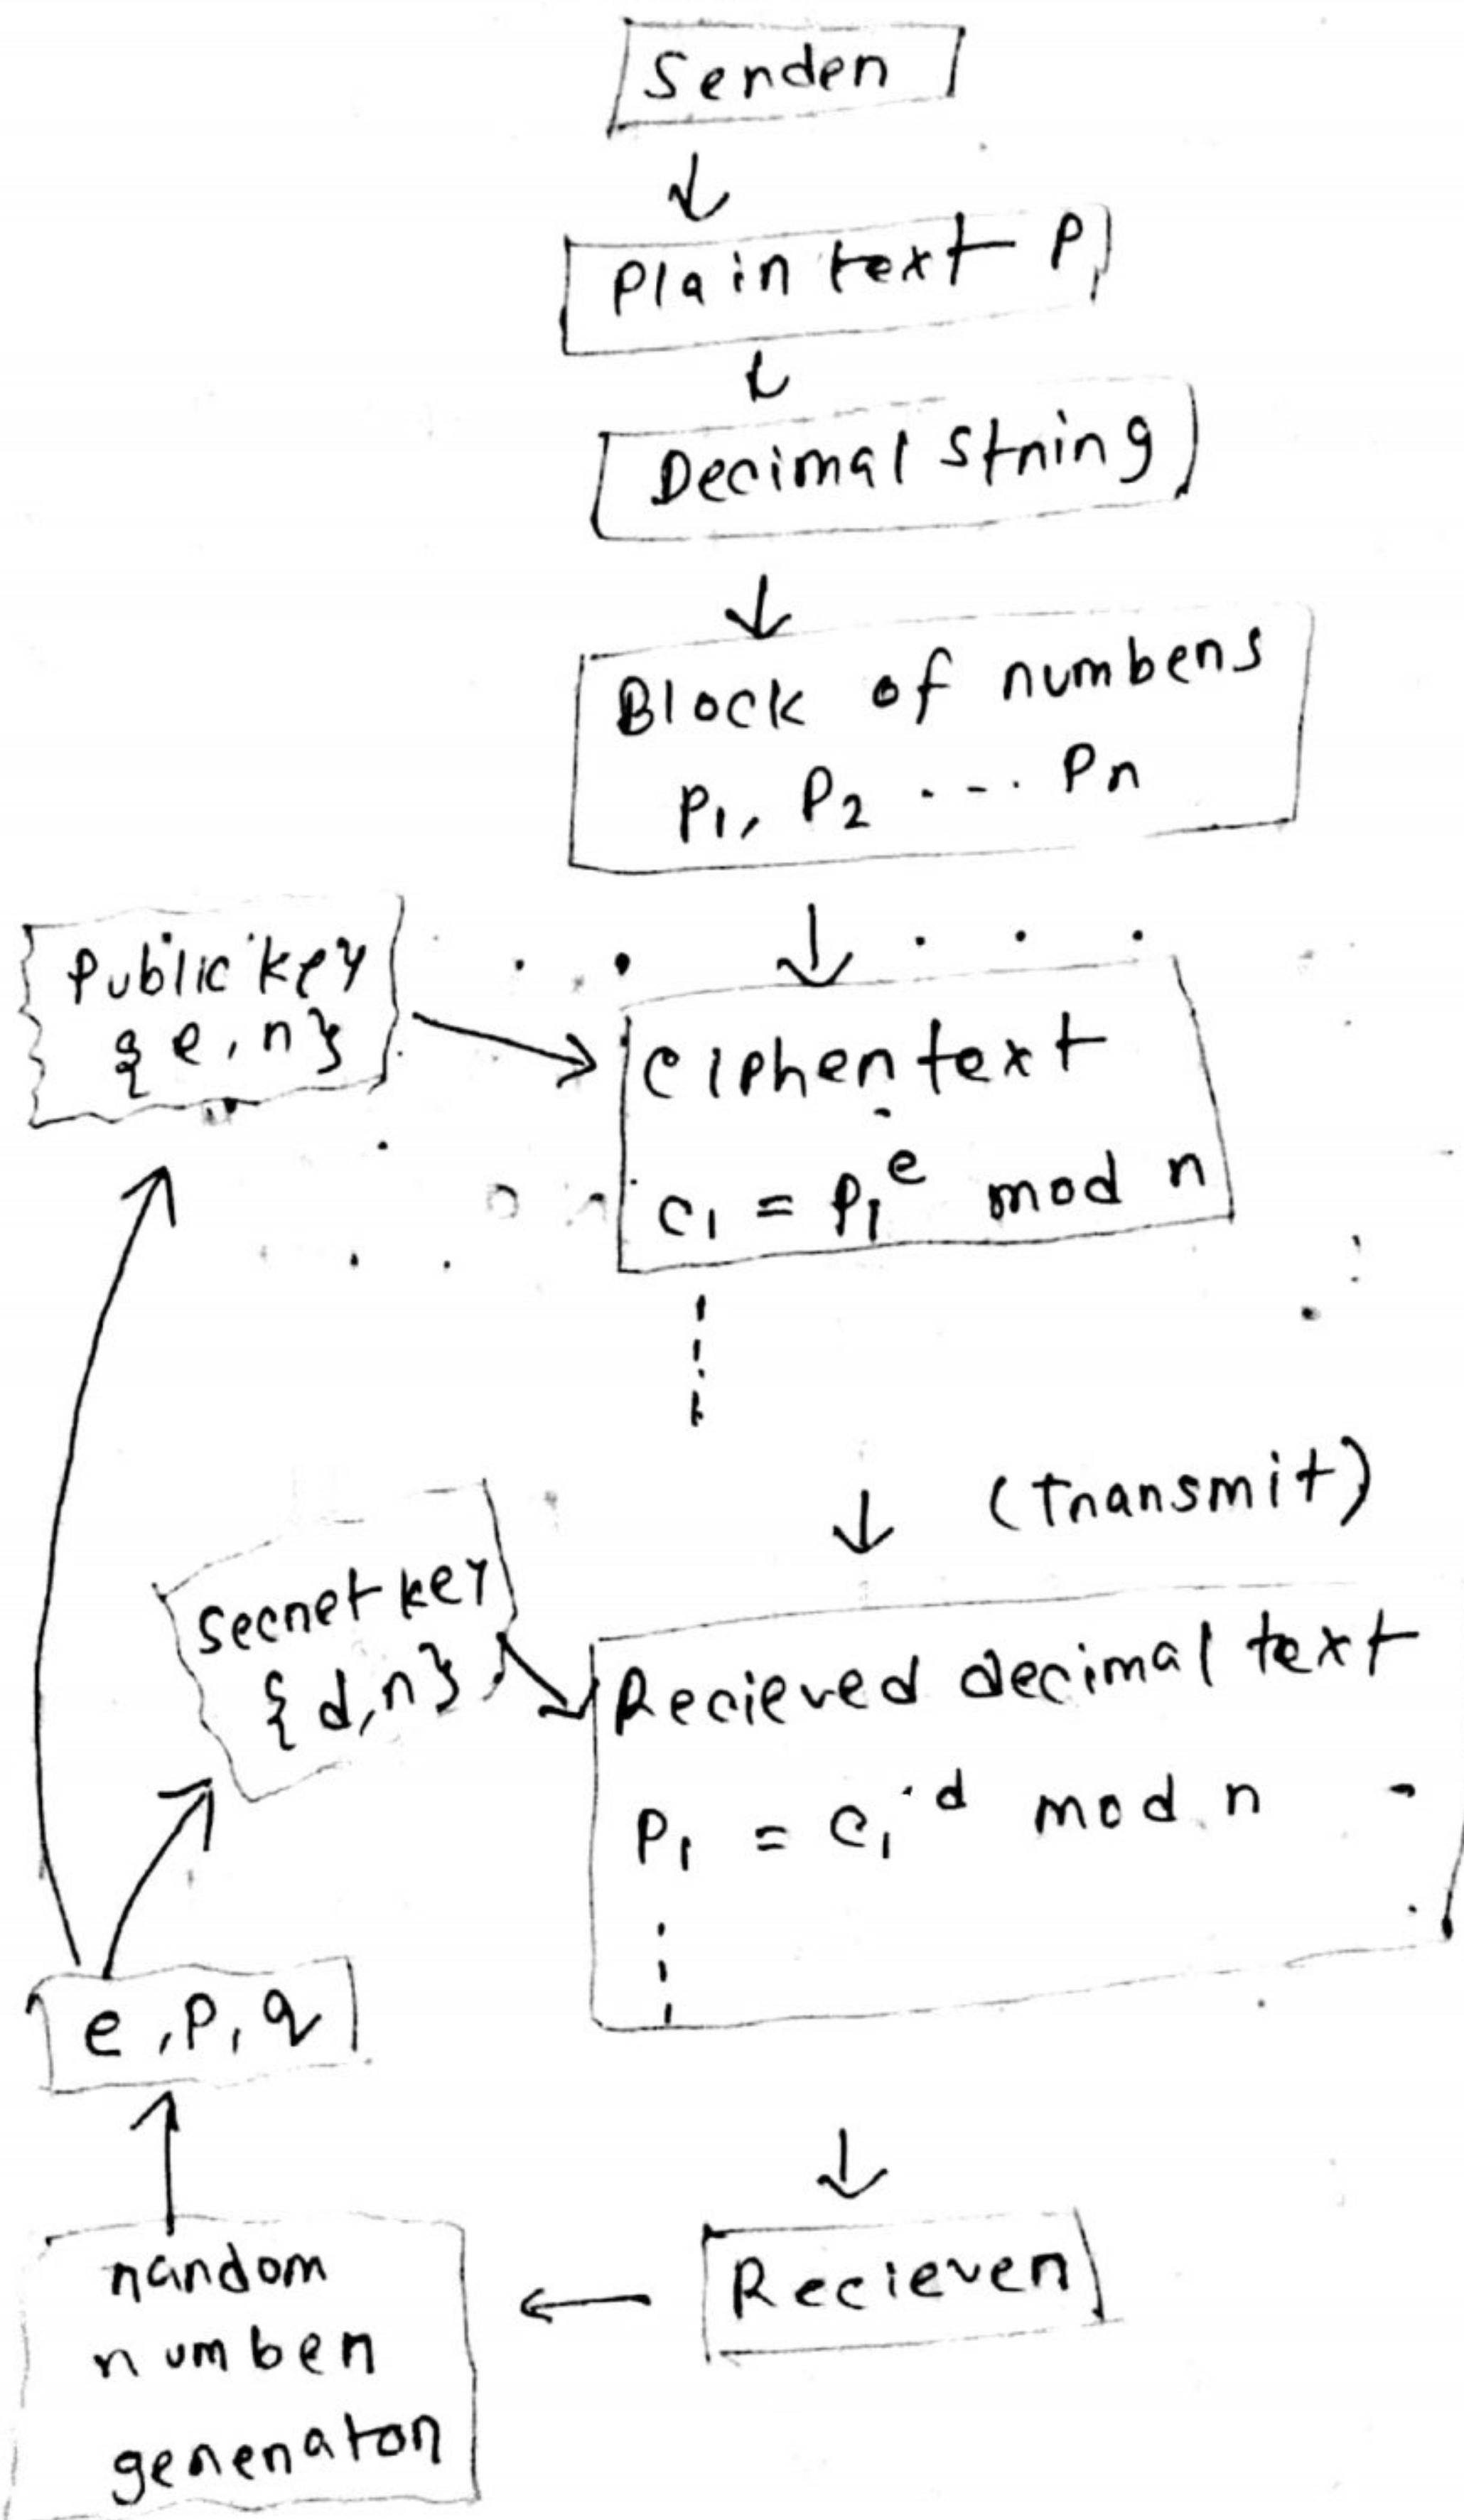 Sender
Plain text P
Decimal string
Block of numbers
P₁, P₂ ---- Pn
Public key
{e, n}
Cipher text
C₁ = P₁ᵉ mod n
(transmit)
Secret key
{d, n}
Recieved decimal text
P₁ = C₁ᵈ mod n
e, p, q
Reciever
random
number
generator